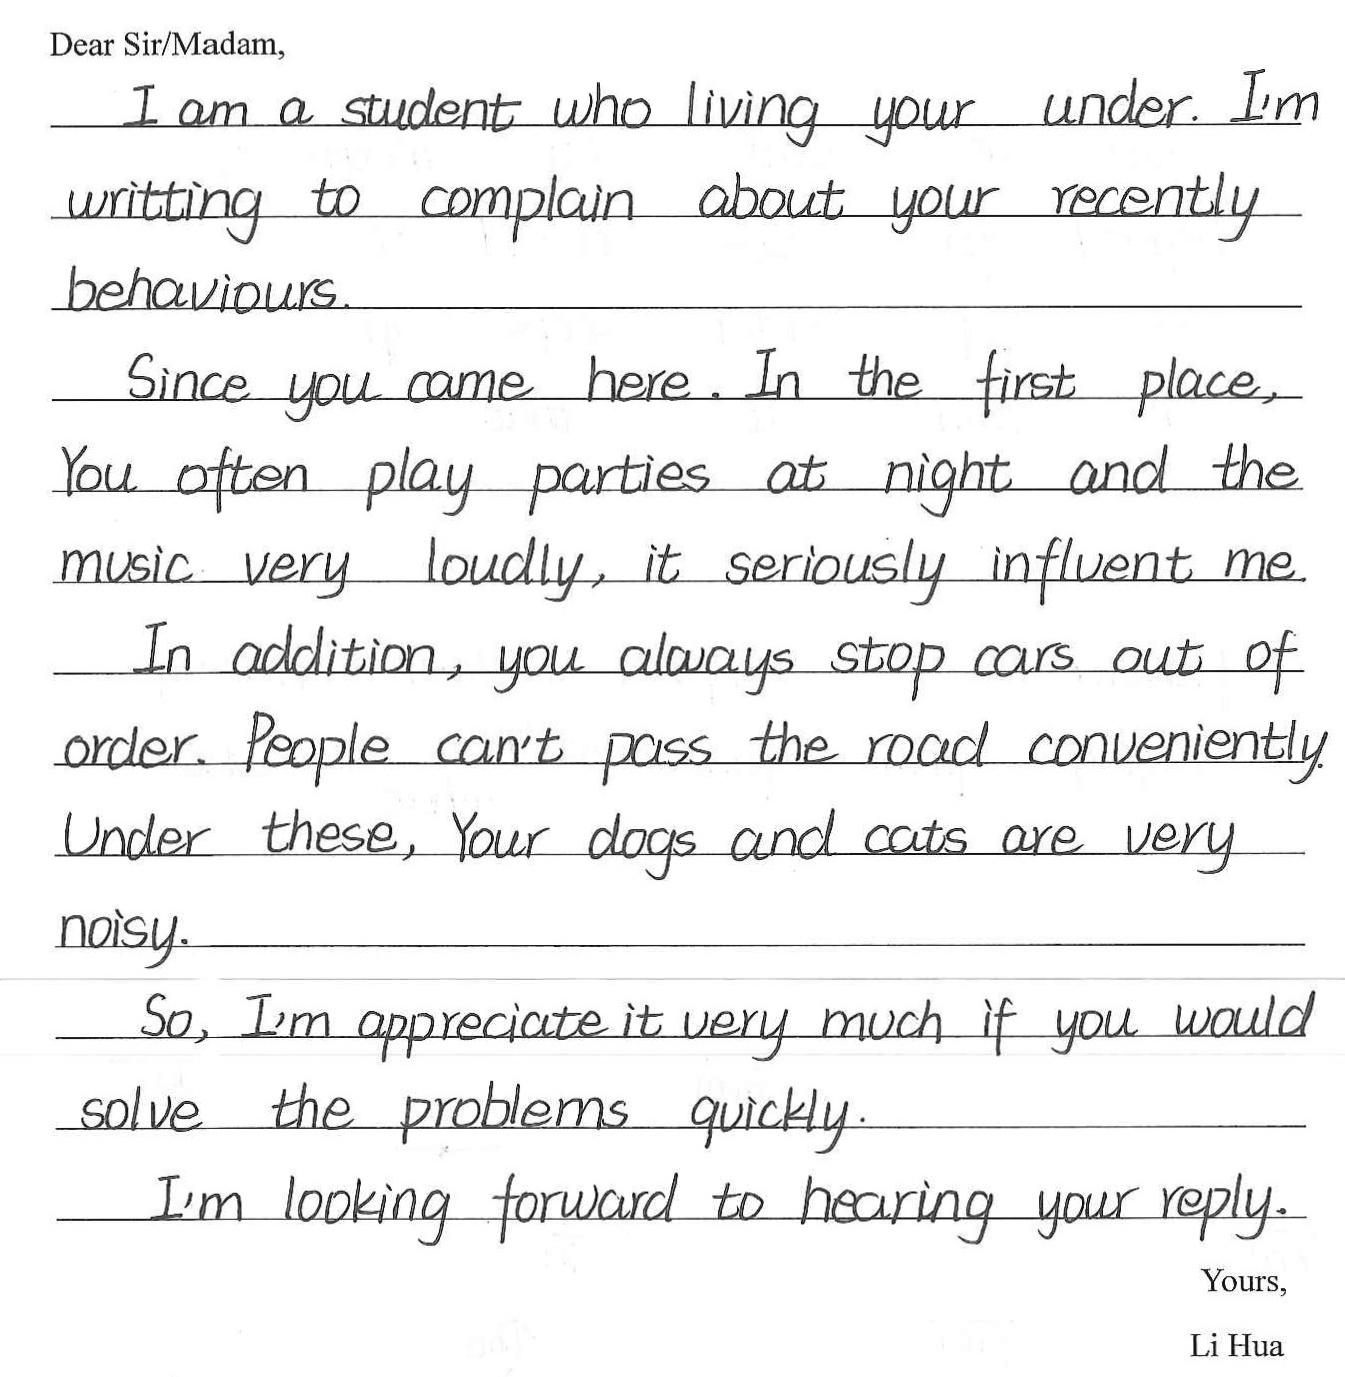 Dear Sir/Madam,
I am a student who living your under. I'm
writting to complain about your recently
behaviours.
Since you came here. In the first place,
You often play parties at night and the
music very loudly, it seriously influent me.
In addition, you always stop cars out of
order. People can't pass the road conveniently.
Under these, Your dogs and cats are very
noisy.
So, I'm appreciate it very much if you would
solve the problems quickly.
I'm looking forward to hearing your reply.
Yours,
Li Hua